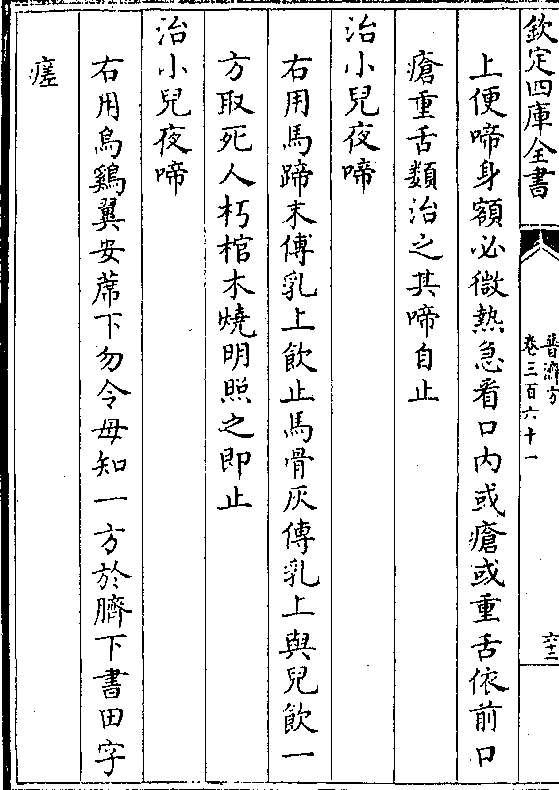 欽定四庫全書
普濟方
卷三百六十一
六十三
上便啼身額必微熱急看口内或瘡或重舌依前口
瘡重舌類治之其啼自止
治小兒夜啼
右用馬蹄末傅乳上飲止馬骨灰傅乳上與兒飲一
方取死人朽棺木燒明照之即止
治小兒夜啼
右用烏鷄翼安蓆下勿令母知一方於臍下書田字
瘥